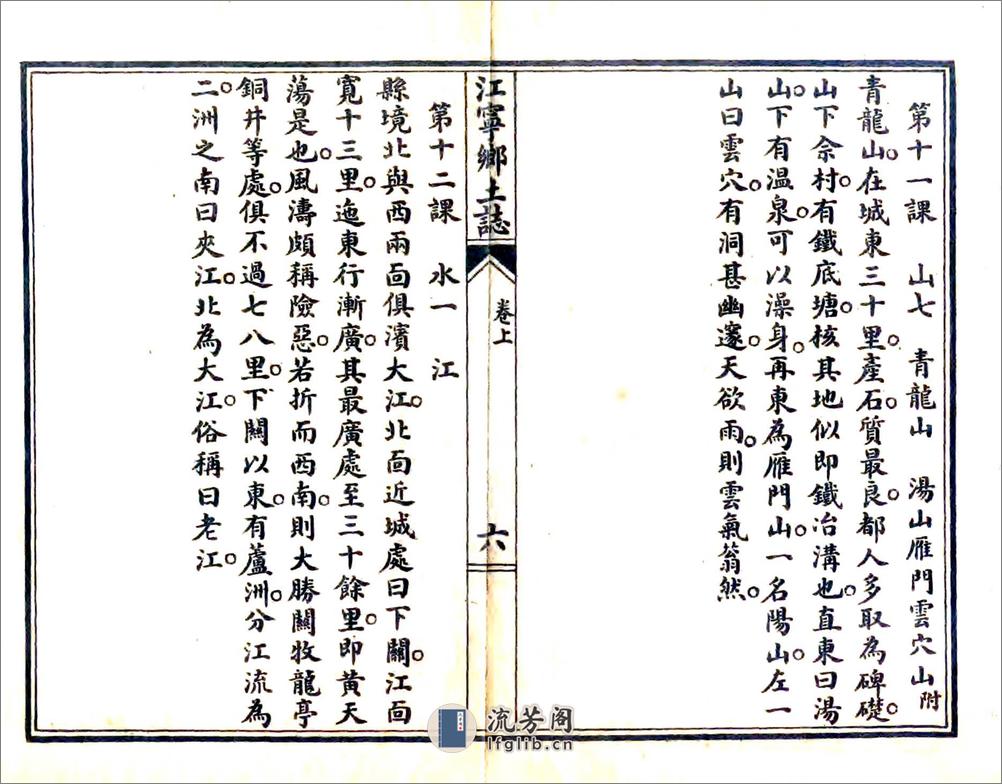 第十一課　山七　青龍山　湯山雁門雲穴山附
青龍山。在城東三十里。產石。質最良。都人多取為碑礎。
山下佘村。有鐵底塘。核其地似即鐵冶溝也。直東曰湯
山。山下有溫泉。可以澡身。再東為雁門山。一名陽山。左一
山曰雲穴。有洞甚幽邃。天欲雨。則雲氣蓊然。
江寧鄉土誌
卷上
六
第十二課　水一　江
縣境北與西兩面俱濱大江。北面近城處曰下關。江面
寬十三里。迤東行漸廣。其最廣處至三十餘里。即黃天
蕩是也。風濤頗稱險惡。若折而西南。則大勝關牧龍亭
銅井等處。俱不過七八里。下關以東。有蘆洲。分江流為
二。洲之南曰夾江。北為大江。俗稱曰老江。
流芳阁
lfglib.cn